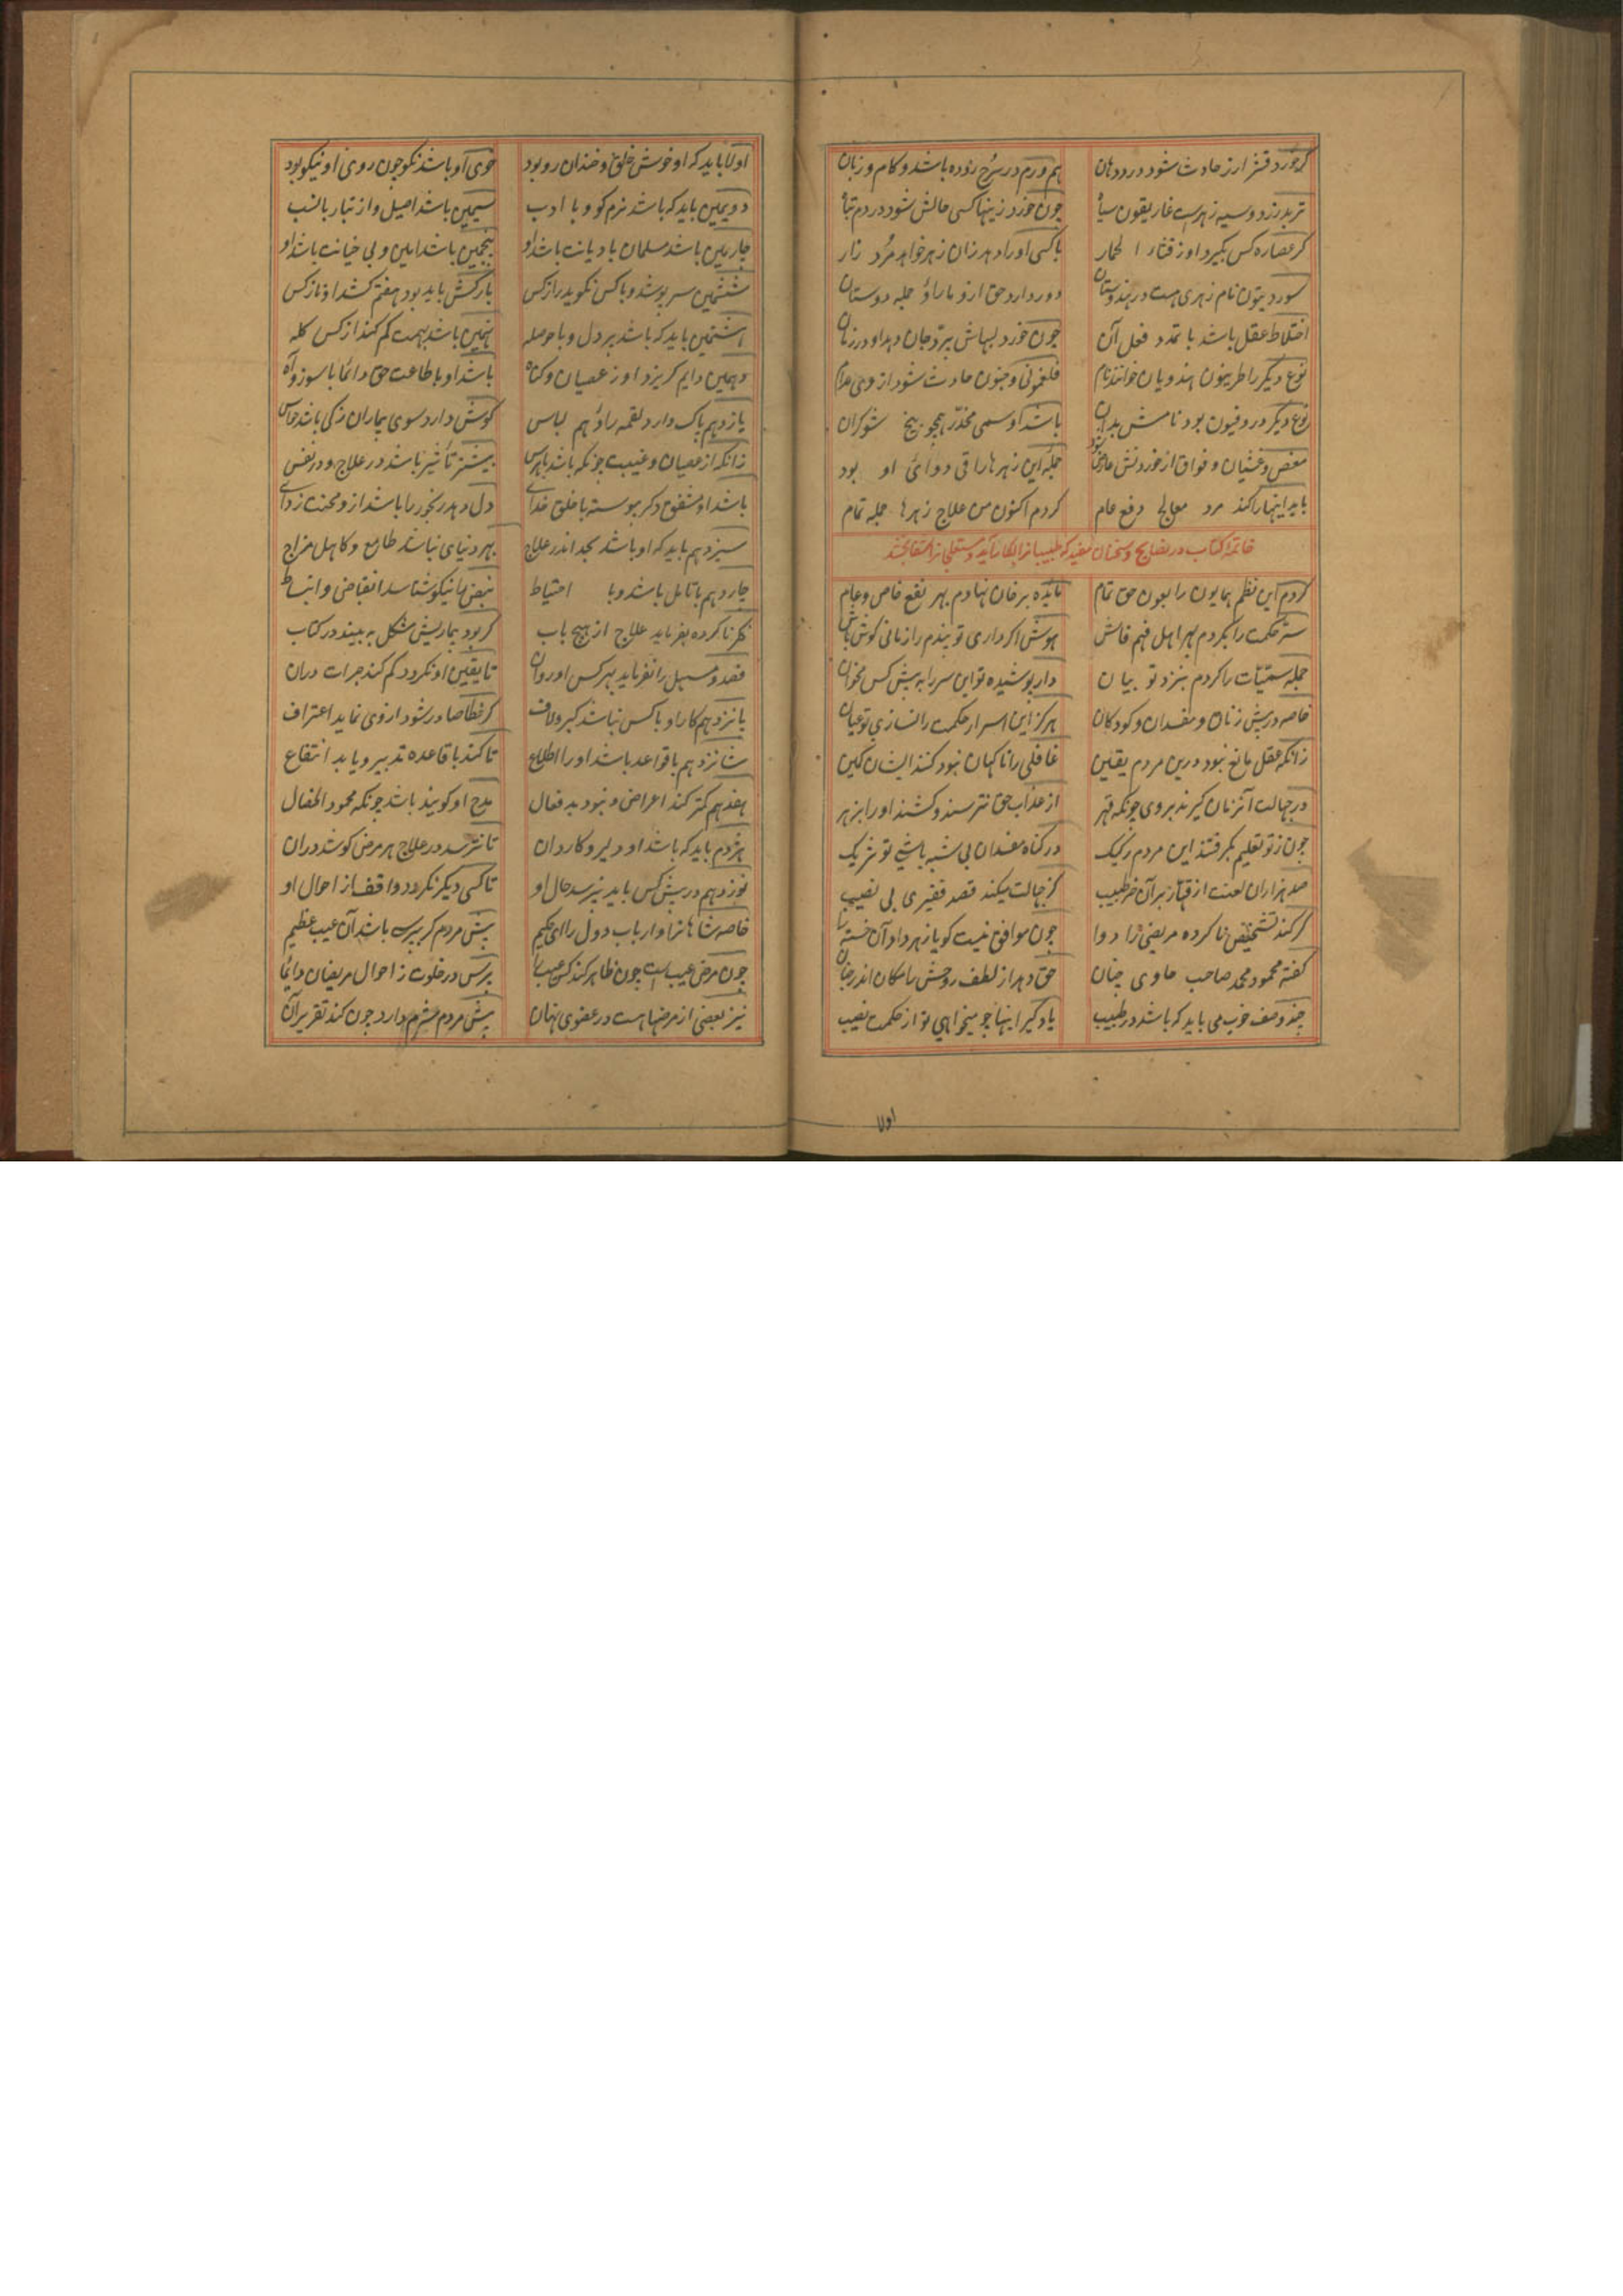 کر خورد قنز ارز حادث شود درد دهان هم ورم در سرخ روده باشد و کام و زبان
تربد زرد و سیه زهرست غاریقون سیاه چون خورد زینها کسی حالش شود در دم تباه
کر عصاره کس بکیرد او ز قثاء الحمار با کسی او را دهد زان زهر خواهد مرد زار
نام زهری هست در هندوستان دور دارد حق ازو مارا و جمله دوستان
اختلاط عقل باشد با تمدد فعل آن چون خورد لبهاش بترقد جان دهد او در زمان
نوع دیکر را طریفون هندویان خوانند نام فلغمونی و جنون حادث شود از وی مدام
نوع دیکر دروفیون بود نامش بدان باشد او سمی مخدر همچو بیخ شوکران
مغص و غشیان و فواق از خوردنش عارض شود جمله این زهرها را قی دوائی او بود
باید اینها را کند مرد معالج دفع عام کردم اکنون من علاج زهرها جمله تمام
خاتمه کتاب در نصایح و سخنان مفید که طبیبانرا بکار آید و مستعلجانرا شفا بخشد
کردم این نظم همایون را بعون حق تمام مائده بر خان نهادم بهر نفع خاص و عام
سر حکمت را بکردم بهر اهل فهم فاش هوش اکر داری تو پندم را زمانی کوش باش
جمله سمیات را کردم بنزد تو بیان دار پوشیده تو این سر را به پیش کس مخوان
خاصه در پیش زنان و مفسدان و کودکان هرکز این اسرار حکمت را نسازی تو عیان
زانکه عقل مانع نبود درین مردم یقین غافلی را ناکهان نبود کنند ایشان کمین
در جهالت آنزمان کیرند بر وی چونکه قهر از عذاب حق نترسند و کشند او را بزهر
چون ز تو تعلیم بکرفتند این مردم رکیک در کناه مفسدان بی شبه باشی تو شریک
صد هزاران لعنت از قهار بر آن خر طبیب کز جهالت میکند قصد فقیری بی نصیب
کر کند تشخیص ناکرده مریضی را دوا چون موافق نیست کویا زهر داد آن خسته را
کفته محمود محمد صاحب حاوی چنان حق دهد از لطف روحش را مکان اندر جنان
چند وصف خوب می باید که باشد در طبیب یاد کیر اینها چو میخواهی تو از حکمت نصیب
اولا
اولا باید که او خوش خلق و خندان رو بود خوی او باشد نکو چون روی او نیکو بود
دویمین باید که باشد نرم کو و با ادب سیمین باشد اصیل و از تبار با نسب
چارمین باشد مسلمان با دیانت باشد او پنجمین باشد امین و بی خیانت باشد او
ششمین سر پوشد و با کس نکوید راز کس بارکش باید بود هفتم کشد او ناز کس
هشتمین باید که باشد پر دل و با حوصله نهمین باشد بهمت کم کند از کس کله
دهمین دایم کریزد او ز عصیان و کناه باشد او با طاعت حق دائما با سوز و آه
یازدهم پاک دارد لقمه را و هم لباس کوش دارد سوی بیماران زکی باشد حواس
زانکه از عصیان و غیبت چونکه باشد بهراس بیشتر تأثیر باشد در علاج و در نفس
باشد او مشفق دکر پیوسته با خلق خدای دل دهد رنجور را باشد ازو محنت زدای
سیزدهم باید که او باشد بجد اندر علاج بهر دنیای نباشد طامع و کاهل مزاج
چاردهم با تامل باشد و با احتیاط نبض را نیکو شناسد انقباض و انبساط
فکر ناکرده نفرماید علاج از هیچ باب کر بود بیماریش مشکل به بیند در کتاب
فصد و مسهل را نفرماید بهر کس او روان تا یقین او نکردد کم کند جرات دران
پانزدهم کار او با کس نباشد کبر و لاف کر خطا صادر شود از وی نماید اعتراف
شانزدهم با قواعد باشد او را اطلاع تا کند با قاعده تدبیر و یابد انتفاع
هفدهم کمتر کند اعراض و نبود بد فعال مدح او کویند باشد چونکه محمود الخصال
هژدم باید که باشد او دلیر و کاردان تا نترسد در علاج هر مرض کوشد دران
نوزدهم در پیش کس باید نپرسد حال او تا کسی دیکر نکردد واقف از احوال او
خاصه شاهانرا و ارباب دول را ای حکیم پیش مردم کر بپرسد باشد آن عیب عظیم
چون مرض عیب است چون ظاهر کند کس عیبها پرس در خلوت ز احوال مریضان دائما
نیز بعضی از مرضها هست در عضوی نهان پیش مردم شرم دارد چون کند تقریر آن